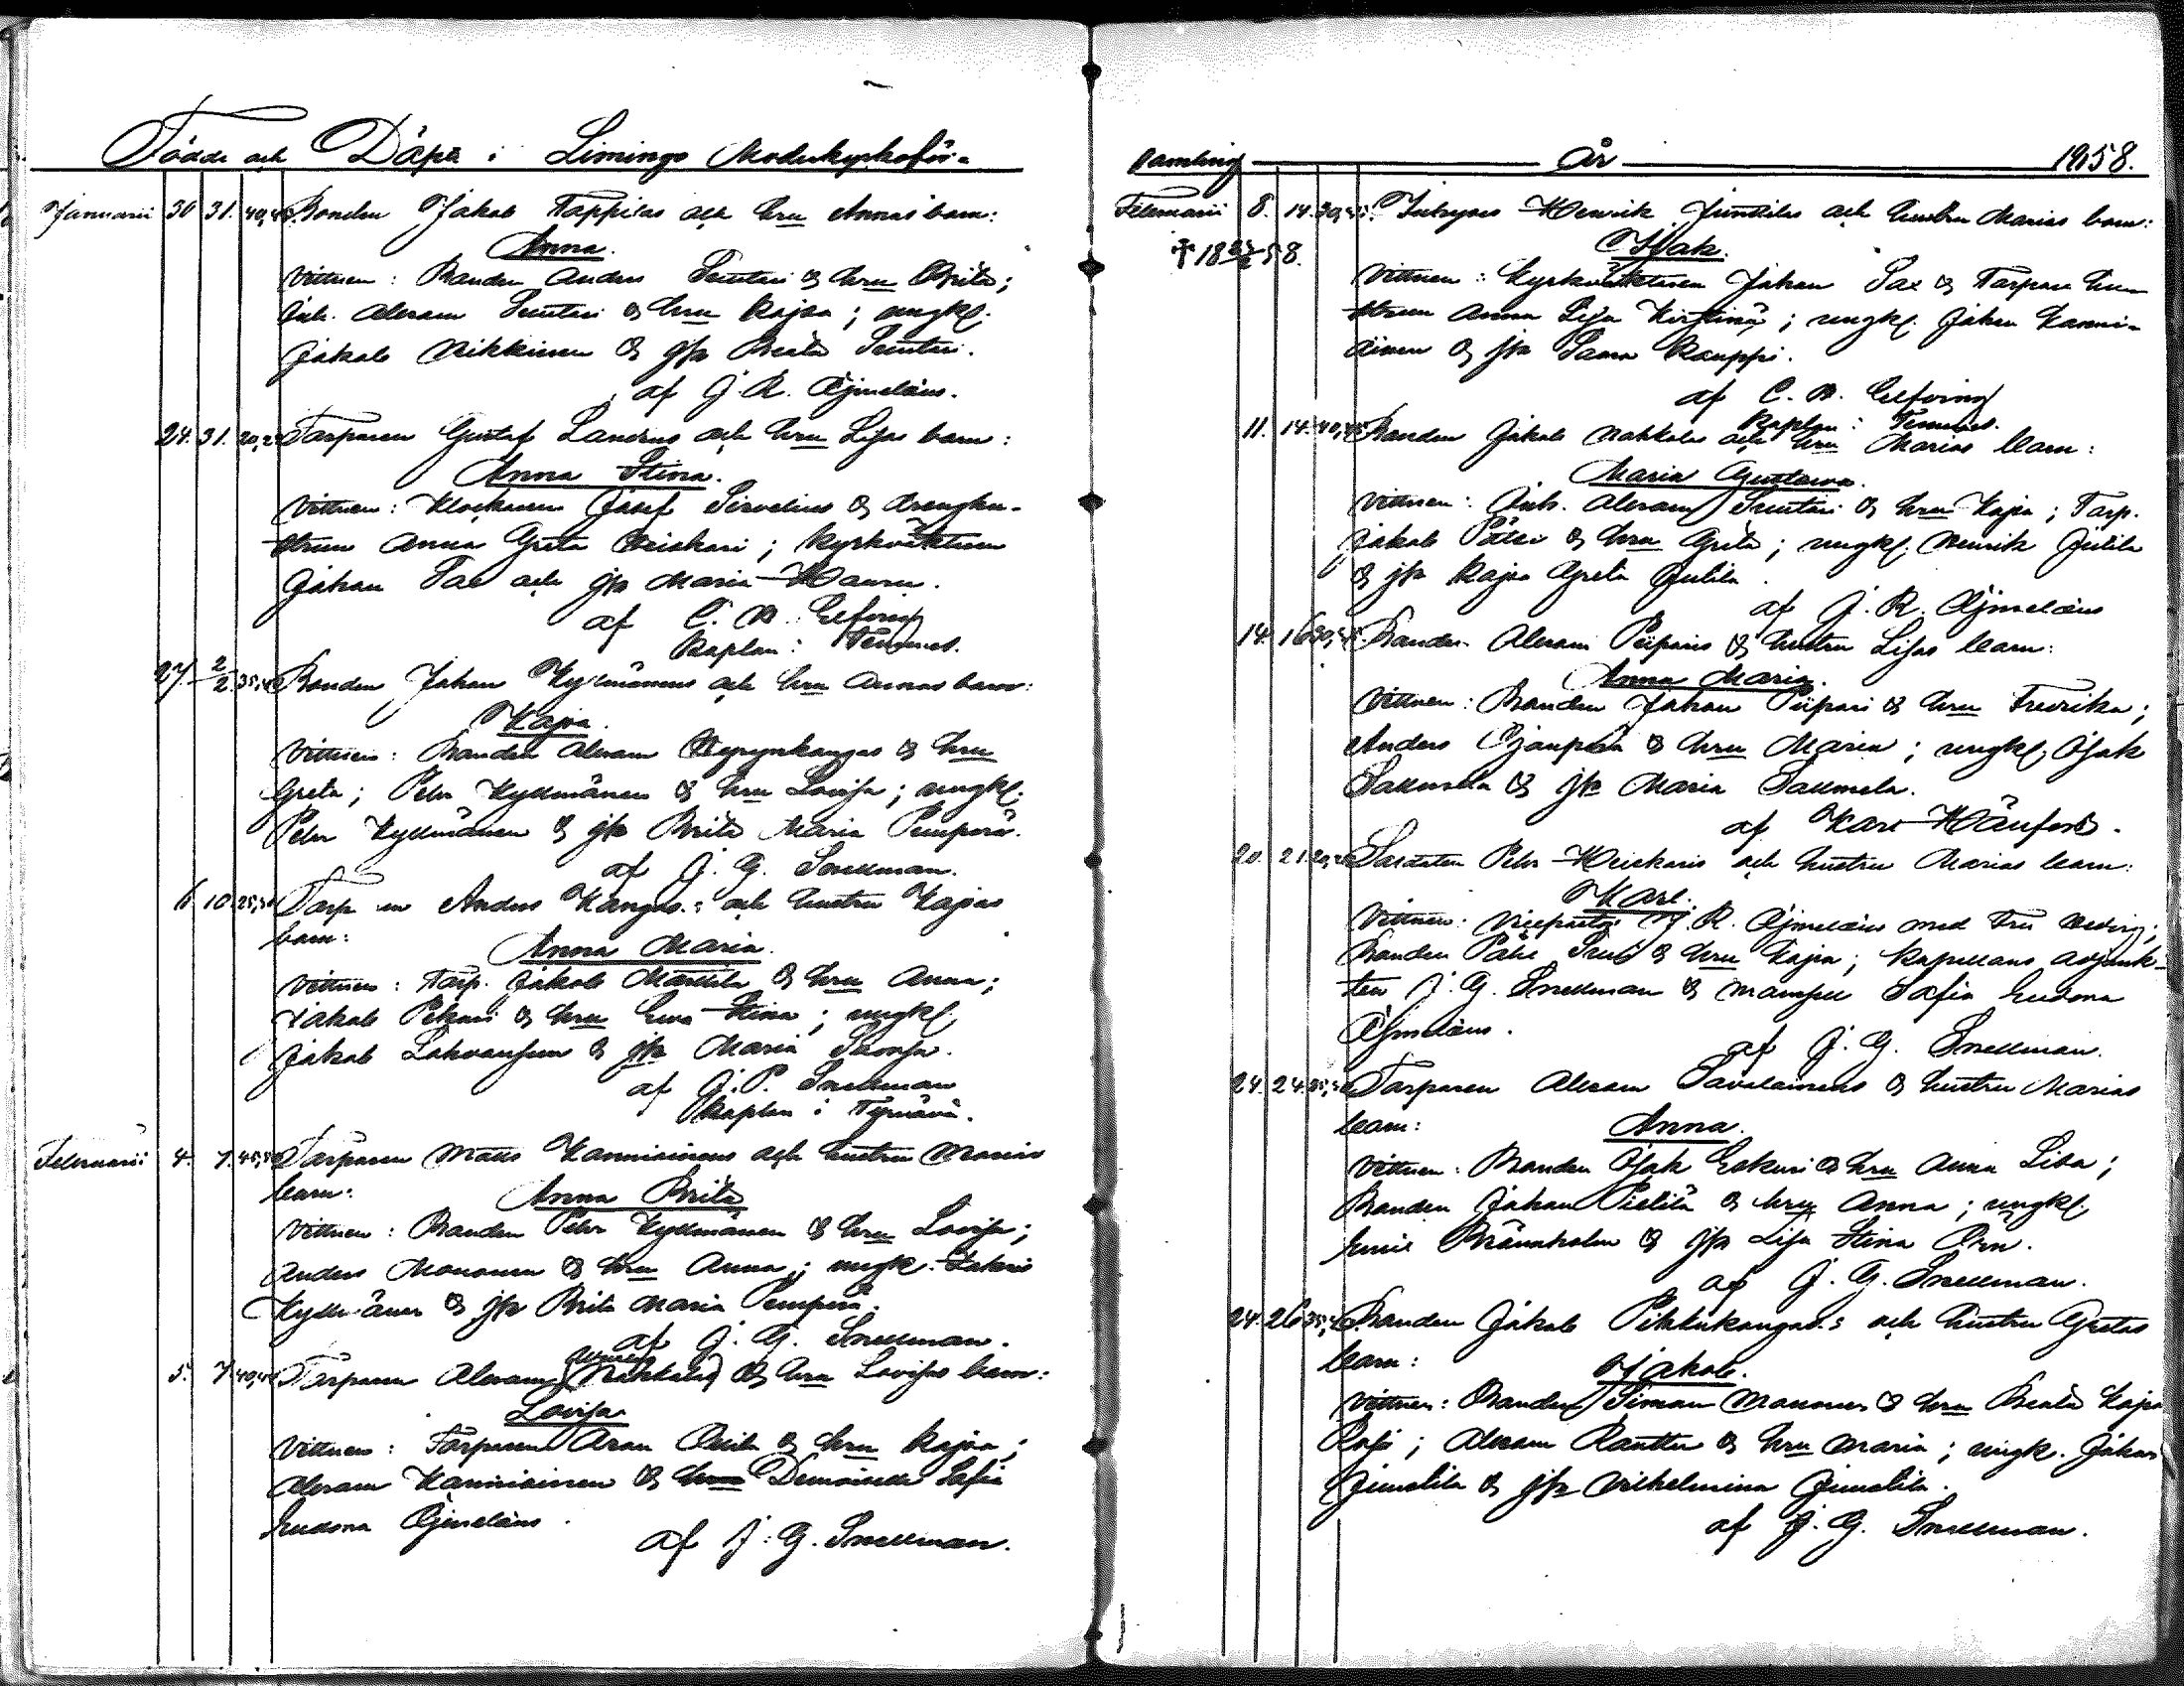 Födde och Döpte i Limingo Moderkyrkoför-
Januarii 30 31. 40,45. Bonden Jakob Tappilas och hru Annas barn:
Anna.
Vittnen: Bonden Anders Suutari & hru Brita;
Inh. Abram Suutari & hru Kajsa; ungkl.
Jakob Mikkinen & jfr Beata Suutari.
af J. R. Ajmelæus.
24. 31. Torparen Gustaf Landrus och hru Lisas barn:
Anna Stina.
Vittnen: Klockaren Josef Sirvelius & drenghu-
strun Anna Greta Heiskari; kyrkoväktaren
Johan Sax och jfr Maria
af C. R. Elfving
Kaplan i Temmes.
27. 2/2 Bonden Johan Kyllmänens och hru Annas barn:
Kajsa.
Vittnen: Bonden Abram & hru
Greta; Petr Kyllmänen & hru Lovisa; ungkl.
Petr Kyllmänen & jfr Brita Maria Pemperä.
af J. G. Snellman.
6. 10. Torp en Anders Kangas: och hustru Kajsas
barn: Anna Maria.
Vittnen: Torp. Jakob Marttila & hru Anna;
Jakob Pekuri & hru Eva Stina; ungkl.
Jakob & jfr Maria
af J. P. Snellman
Kaplan i Tyrnävä.
Februarii 4. 7. Torparen Matts Kanniainens och hustru Marias
barn: Anna Brita
Vittnen: Bonden Petr Kyllmänen & hru Lovisa;
Anders Mononen & hru Anna; ungk. Zakris
Kyllmänen & jfr Brita Maria Pemperä.
af J. G. Snellman.
5. 7. Torparen Abram (Nahkalas) & hru Lovisas barn:
Lovisa
Vittnen: Torparen Aron & hru Kajsa;
Abram Kanniainen & Demoiselle Sofia
Eudora Ajmelæus.
af J. G. Snellman.
samling År 1858.
Februarii 8. 14. Inhyses Henrik Junttilas och hustru Marias barn:
Isak.
† 18 58.
Vittnen: Kyrkoväktaren Johan Sax & Torpare hu-
strun Anna Lisa Kirstinä; ungkl. Johan Kanni-
ainen & jfr Saara Kauppi.
af C. R. Elfving
Kaplan i Temmes.
11. 14. 40,45. Bonden Jakob Nahkalas och hru Marias barn:
Maria Gustava.
Vittnen: Inh. Abram Suutari & hru Kajsa; Torp.
Jakob Pätsi & hru Greta; ungkl. Henrik Jutila
& jfr Kajsa Greta Jutila.
af J. R. Ajmelæus
14. 16. Bonden Abram Piiparis & hustru Lisas barn:
Anna Maria.
Vittnen: Bonden Johan Piipari & hru Fredrika;
Anders Ojanperä & hru Maria; ungkl. Isak
Sallmela & jfr Maria Sallmela.
af Karl Hänfors.
20. 21. Soldaten Petr Heiskaris och hustru Marias barn:
Karl.
Vittnen: Vicepastor J. R. Ajmelæus med Fru Hedvig;
Bonden & hru Kajsa; Kapellans adjunk-
ten J. G. Snellman & mamsell Sofia Eudora
Ajmelæus.
af J. G. Snellman.
24. 24. Torparen Abram Savolainens & hustru Marias
barn: Anna.
Vittnen: Bonden Isak & hru Anna Lisa;
Bonden Johan Pietilä & hru Anna; ungkl.
Emil Brännholm & jfr Lisa Stina
af J. G. Snellman.
24. 26. Bonden Jakob Pihkukangas: och hustru Gretas
barn: Jakob.
Vittnen: Bonden Simon Mononen & hru Beata Kajsa
Abram Rantta & hru Maria; ungk. Johan
Junttila & jfr Vilhelmina Junttila.
af J. G. Snellman.